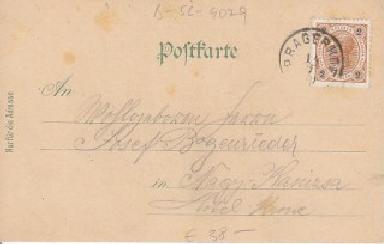 B-SL-9029
Postkarte
PRAGERHOF
2 2
An
Wohlgeboren Herrn
Josef Bogenrieder
in Nagy-Kanizsa
Hotel
Nur für die Adresse
€ 38-